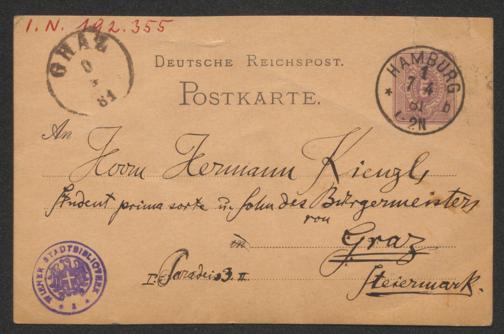 I.N. 192.355
GRAZ
9
4
81
DEUTSCHE REICHSPOST.
POSTKARTE.
HAMBURG
1
7 4
81
1.-2N
* b
An
Herrn Hermann Kienzl,
Student prima sorte u. Sohn des Bürgermeisters
von
in Graz
I. Paradeis 3. II
Steiermark.
WIENER STADTBIBLIOTHEK